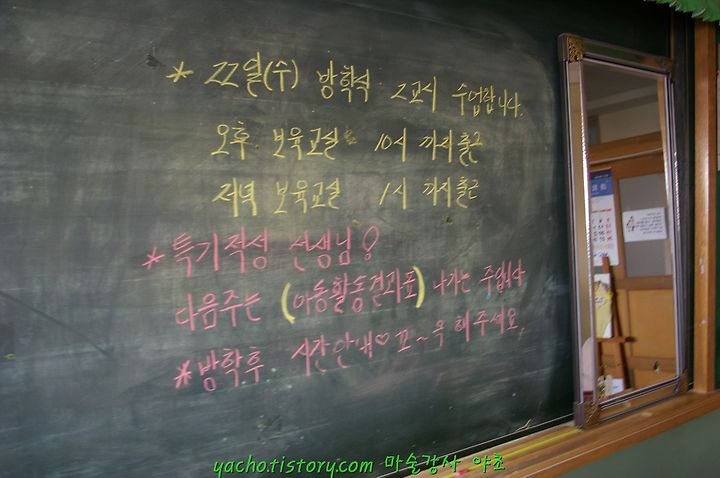 * 22일(수) 방학식 2교시 수업합니다.
오후 보육교실 10시 까지 출근
저녁 보육교실 1시 까지 출근
* 특기적성 선생님?
다음주는 (아동활동결과표) 나가는 주입니다
* 방학후 시간안내♡꼬~옥 해주세요.
yacho.tistory.com 마술강사 야초